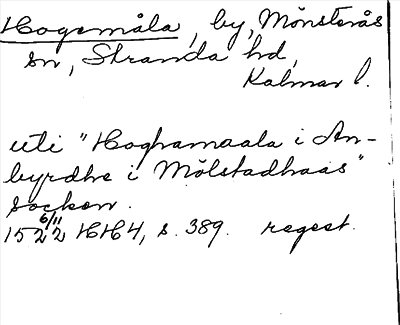 Hogsmåla, by, Mönsterås
sn, Stranda hd,
Kalmar l.
uti "Hoghamaala i An-
byrdhe i Mölstadhaas"
socken.
6/11
1522 HH4, s. 389. regest.